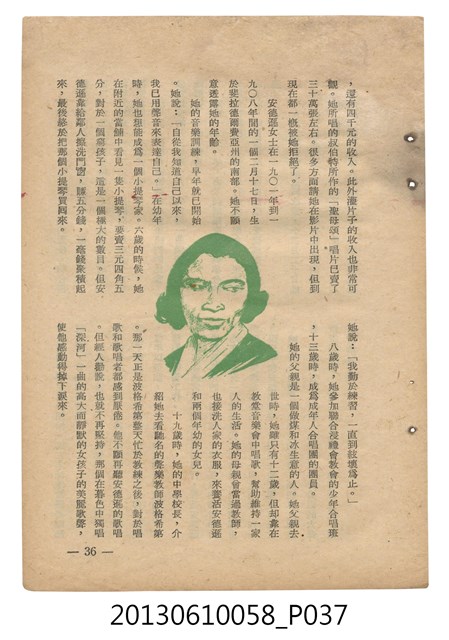 ，還有四千元的收入。此外灌片子的收入也非常可
觀。她所唱的叔伯特所作的「聖母頌」唱片已賣了
三十萬張左右。很多方面請她在影片中出現，但到
現在都一概被她拒絕了。
安德遜女士在一九〇一年到一
九〇八年間的一個二月十七日，生
於斐拉德爾費亞州的南部。她不願
意透露她的年齡。
她的音樂訓練，早年就已開始
。她說：「自從我知道自己以來，
我已用聲音來表達自己。」在幼年
時，她也想能成爲一個小提琴家。六歲的時候，她
在附近的當舖中看見一隻小提琴，要賣三元四角五
分，對於一個窮孩子，這是一個極大的數目。但安
德遜拿給鄰人擦洗門窗，賺五分錢，一毫錢聚積起
來，最後終於把那個小提琴買回來。
她說：「我勤於練習，一直到絃壞爲止。」
八歲時，她參加聯合浸禮會教會的少年合唱團
，十三歲時，成爲成年人合唱團的團員。
她的父親是一個做煤和冰生意的人。她父親去
世時，她雖只有十二歲，但却靠在
教堂音樂會中唱歌，幫助維持一家
人的生活。她的母親會當過教師，
也接洗人家的衣服，來養活安德遜
和兩個年幼的女兒。
十九歲時，她的中學校長，介
紹她去看馳名的聲樂教師波格希第
。那一天正是波格希第整天忙於教練之後，對於唱
歌和歌唱者都感到厭倦。他不願再聽安德遜的歌唱
。但經人勸說，也就不再堅持，那個在暮色中獨唱
「深河」一曲的高大而靜默的女孩子的美麗歌聲，
使他感動得掉下淚來。
— 36 —
20130610058_P037